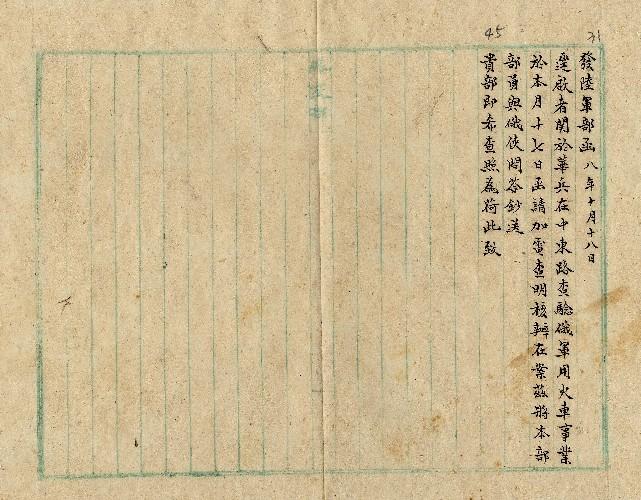 45
31
發陸軍部函 八年十月十八日
逕啟者關於華兵在中東路查驗俄軍用火車事業
於本月十七日函請加電查明核辦在案茲將本部
部員與俄使問答鈔送
貴部即希查照為荷此致